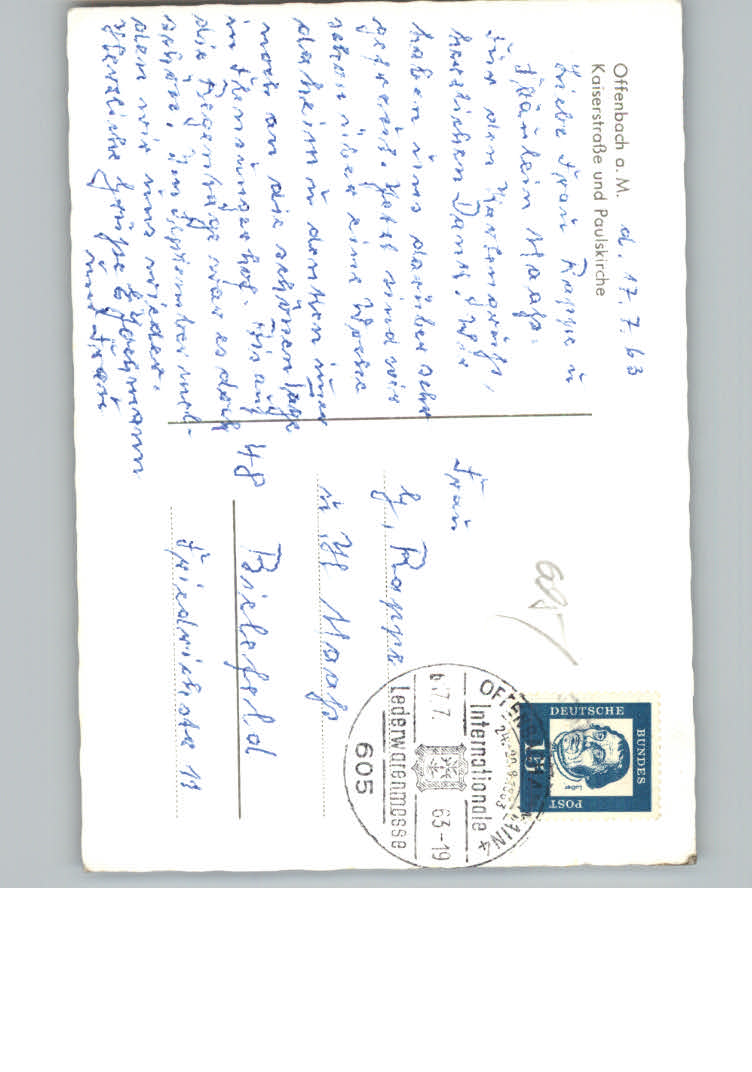 Offenbach a. M.
Kaiserstraße und Paulskirche
d. 17. 7. 63
Liebe Frau Rappe u
Fräulein Maaß.
Für den Kartengruß,
herzlichen Dank. Wir
haben uns darüber sehr
gefreut. Jetzt sind wir
schon über eine Woche
daheim u denken
noch an die schönen Tage
im
die Regentage war es doch
schön. Im September
den wir uns wieder.
Herzliche Grüße
und Frau
Frau
Rappe
u. Maaß
48 Bielefeld
Friedrichstr 11
695
DEUTSCHE
BUNDES
POST
15
Luther
OFFENBACH MAIN 4
Internationale
17.7. 63-19
Lederwarenmesse
605